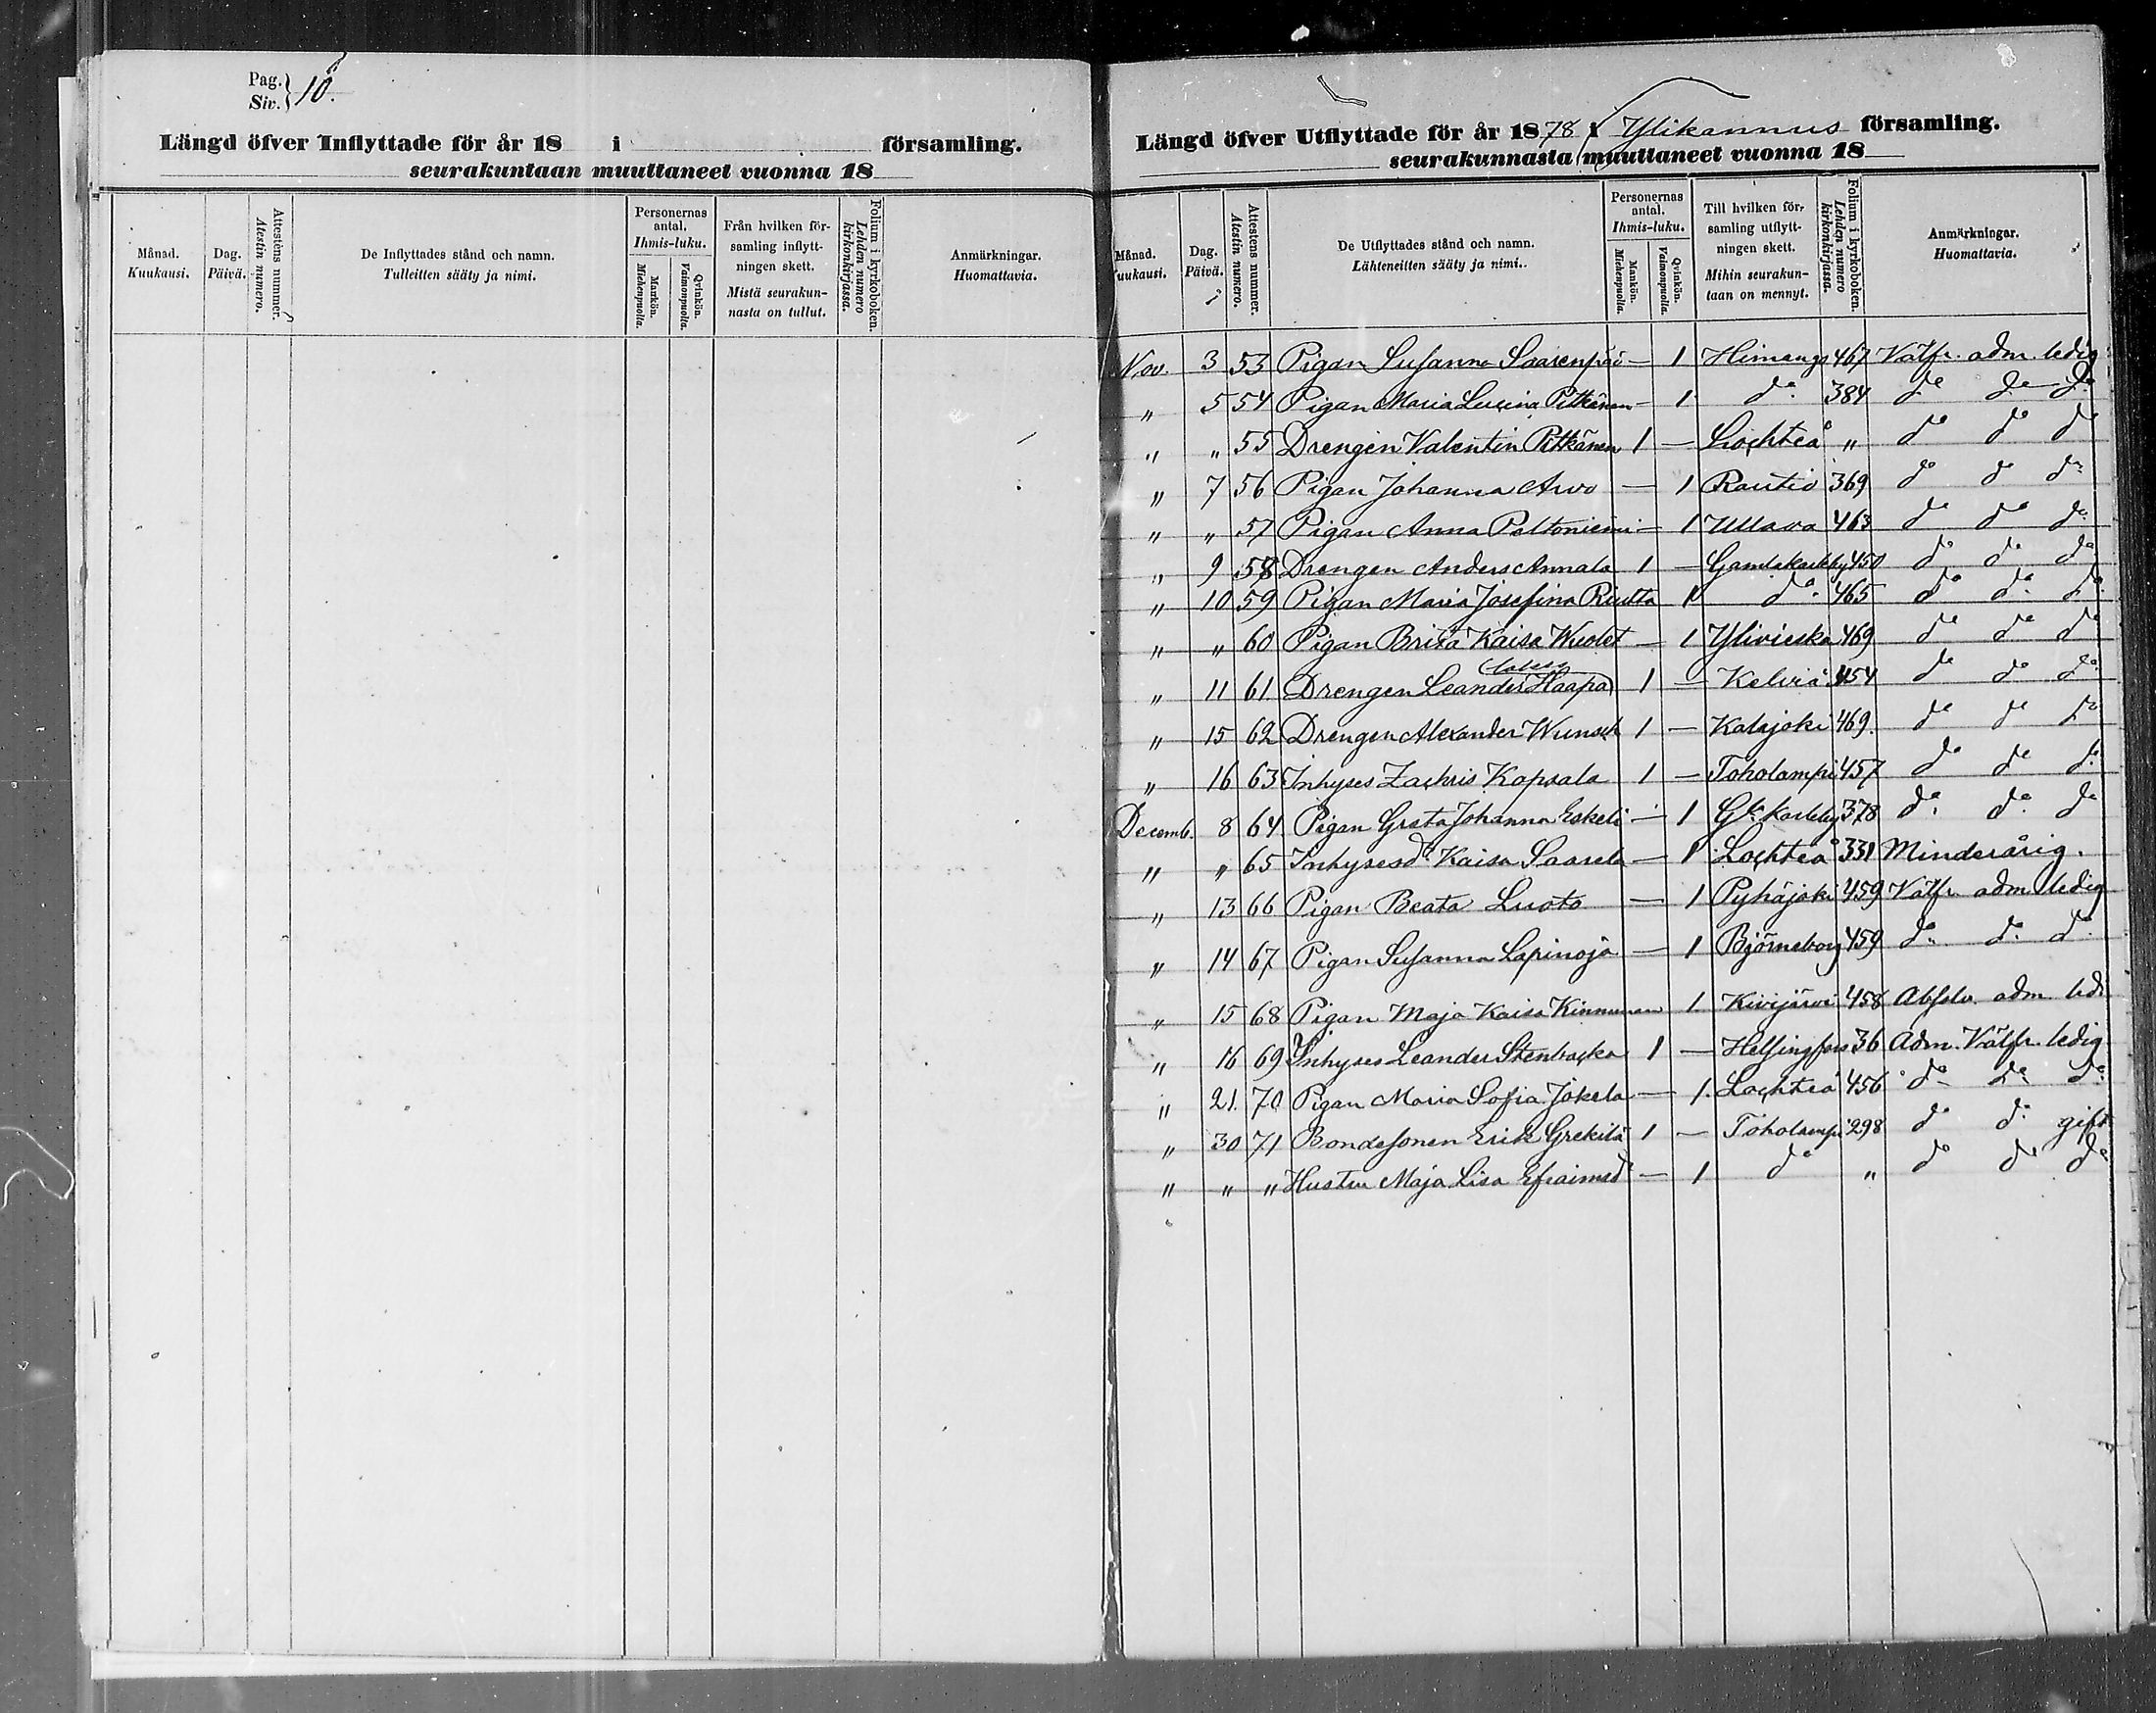 Pag. Siv. } 10.
Längd öfver Inflyttade för år 18 i församling.
seurakuntaan muuttaneet vuonna 18
Månad. Kuukausi.
Dag. Päivä.
Attestens nummer. Atestin numero.
De Inflyttades stånd och namn. Tulleitten sääty ja nimi.
Personernas antal. Ihmis-luku.
Mankön. Miehenpuolia.
Qvinkön. Vaimonpuolia.
Från hvilken församling inflyttningen skett. Mistä seurakunnasta on tullut.
Folium i kyrkoboken. Lehden numero kirkonkirjassa.
Anmärkningar. Huomattavia.
Längd öfver Utflyttade för år 1878 i Ylikannus församling.
seurakunnasta muuttaneet vuonna 18
Månad. Kuukausi.
Dag. Päivä.
Attestens nummer. Atestin numero.
De Utflyttades stånd och namn. Lähteneitten sääty ja nimi.
Personernas antal. Ihmis-luku.
Mankön. Miehenpuolia.
Qvinkön. Vaimonpuolia.
Till hvilken församling utflyttningen skett. Mihin seurakuntaan on mennyt.
Folium i kyrkoboken. Lehden numero kirkonkirjassa.
Anmärkningar. Huomattavia.
Nov. 3 53 Pigan Susanna Saarenpää — 1 Himango 467 Välfr. adm. ledig
" 5 54 Pigan Maria Lusina Pitkänen — 1 do 384 do do do
" " 55 Drengen Valentin Pitkänen 1 — Lochteå " do do do
" 7 56 Pigan Johanna Arvo — 1 Rautio 369 do do do
" " 57 Pigan Anna Peltoniemi — 1 Ullava 463 do do do
" 9 58 Drengen Anders Annala 1 — Gamlakarleby 450 do do do
" 10 59 Pigan Maria Josefina Riutta 1 do 465 do do do
" " 60 Pigan Brita Kaisa Wuolet — 1 Ylivieska 469 do do do
" 11 61 Drengen Leander Haapa 1 — Kelviå 454 do do do
" 15 62 Drengen Alexander Wunsch 1 — Kalajoki 469. do do do
" 16 63 Inhyses Zachris Kopsala 1 — Toholampi 457 do do do
Decemb. 8 64 Pigan Greta Johanna Eskeli — 1 Gla Karleby 378 do do do
" " 65 Inhysesd Kaisa Saarela — 1 Lochteå 331 Minderårig.
" 13 66 Pigan Beata Luoto — 1 Pyhäjoki 459 Välfr. adm. ledig
" 14 67 Pigan Susanna Lapinoja — 1 Björneborg 459 do do do
" 15 68 Pigan Maja Kaisa Kinnunen 1 Kivijärvi 458 Absolv. adm. led.
" 16 69 Inhyses Leander Stenbacka 1 — Helsingfors 36 Adm. Välfr. ledig
" 21. 70 Pigan Maria Sofia Jokela — 1. Lochteå 456 do do do
" 30 71 Bondesonen Erik Grekilä 1 — Toholampi 298 do do gift
" " " Hustru Maja Lisa Efraimsd — 1 do " do do do